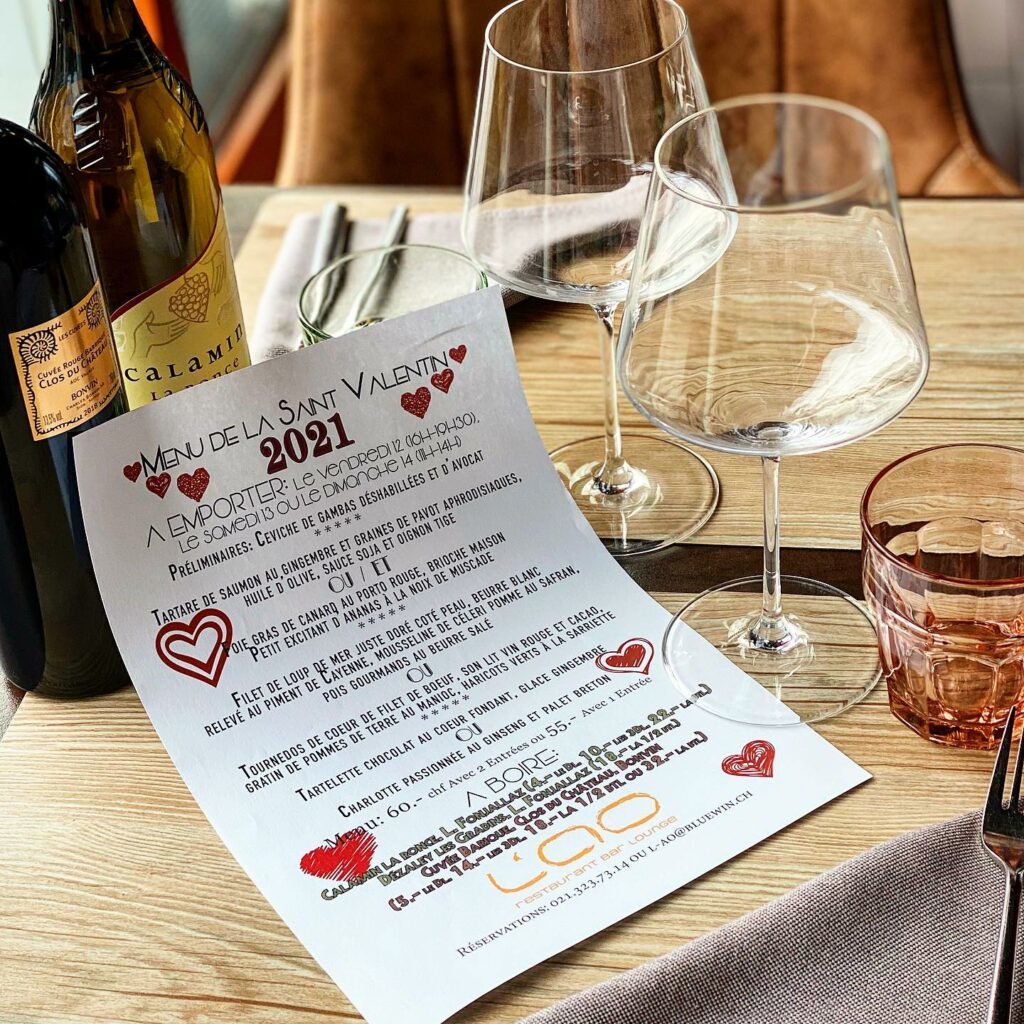 LES CURIEUX
CUVÉE ROUGE BARRIQUE
CLOS DU CHÂTEAU
BONVIN
2018
CALAMIN
MENU DE LA SAINT VALENTIN
2021
A EMPORTER: LE VENDREDI 12 (16H-19H30),
LE SAMEDI 13 OU LE DIMANCHE 14 (11H-14H)
PRÉLIMINAIRES: CEVICHE DE GAMBAS DÉSHABILLÉES ET D'AVOCAT
*****
TARTARE DE SAUMON AU GINGEMBRE ET GRAINES DE PAVOT APHRODISIAQUES,
HUILE D'OLIVE, SAUCE SOJA ET OIGNON TIGE
OU / ET
FOIE GRAS DE CANARD AU PORTO ROUGE, BRIOCHE MAISON
PETIT EXCITANT D'ANANAS À LA NOIX DE MUSCADE
*****
FILET DE LOUP DE MER JUSTE DORÉ COTÉ PEAU, BEURRE BLANC
RELEVÉ AU PIMENT DE CAYENNE, MOUSSELINE DE CÉLERI POMME AU SAFRAN,
POIS GOURMANDS AU BEURRE SALÉ
OU
TOURNEDOS DE COEUR DE FILET DE BOEUF, SON LIT VIN ROUGE ET CACAO,
GRATIN DE POMMES DE TERRE AU MANIOC, HARICOTS VERTS À LA SARRIETTE
*****
TARTELETTE CHOCOLAT AU COEUR FONDANT, GLACE GINGEMBRE
OU
CHARLOTTE PASSIONNÉE AU GINSENG ET PALET BRETON
MENU: 60.- CHF AVEC 2 ENTRÉES OU 55.- AVEC 1 ENTRÉE
A BOIRE:
CALAMIN LA RONCE, L. FONJALLAZ (4.- LE DL, 10.- LES 3DL, 22.- LA BTL)
DÉZALEY LES GRADINS, L. FONJALLAZ (18.- LA 1/2 BTL)
CUVÉE BARIQUE, CLOS DU CHÂTEAU, BONVIN
(5.- LE DL, 14.- LES 3DL, 18.- LA 1/2 BTL OU 32.- LA BTL)
L'AO
restaurant bar lounge
RÉSERVATIONS: 021.323.73.14 OU L-AO@BLUEWIN.CH